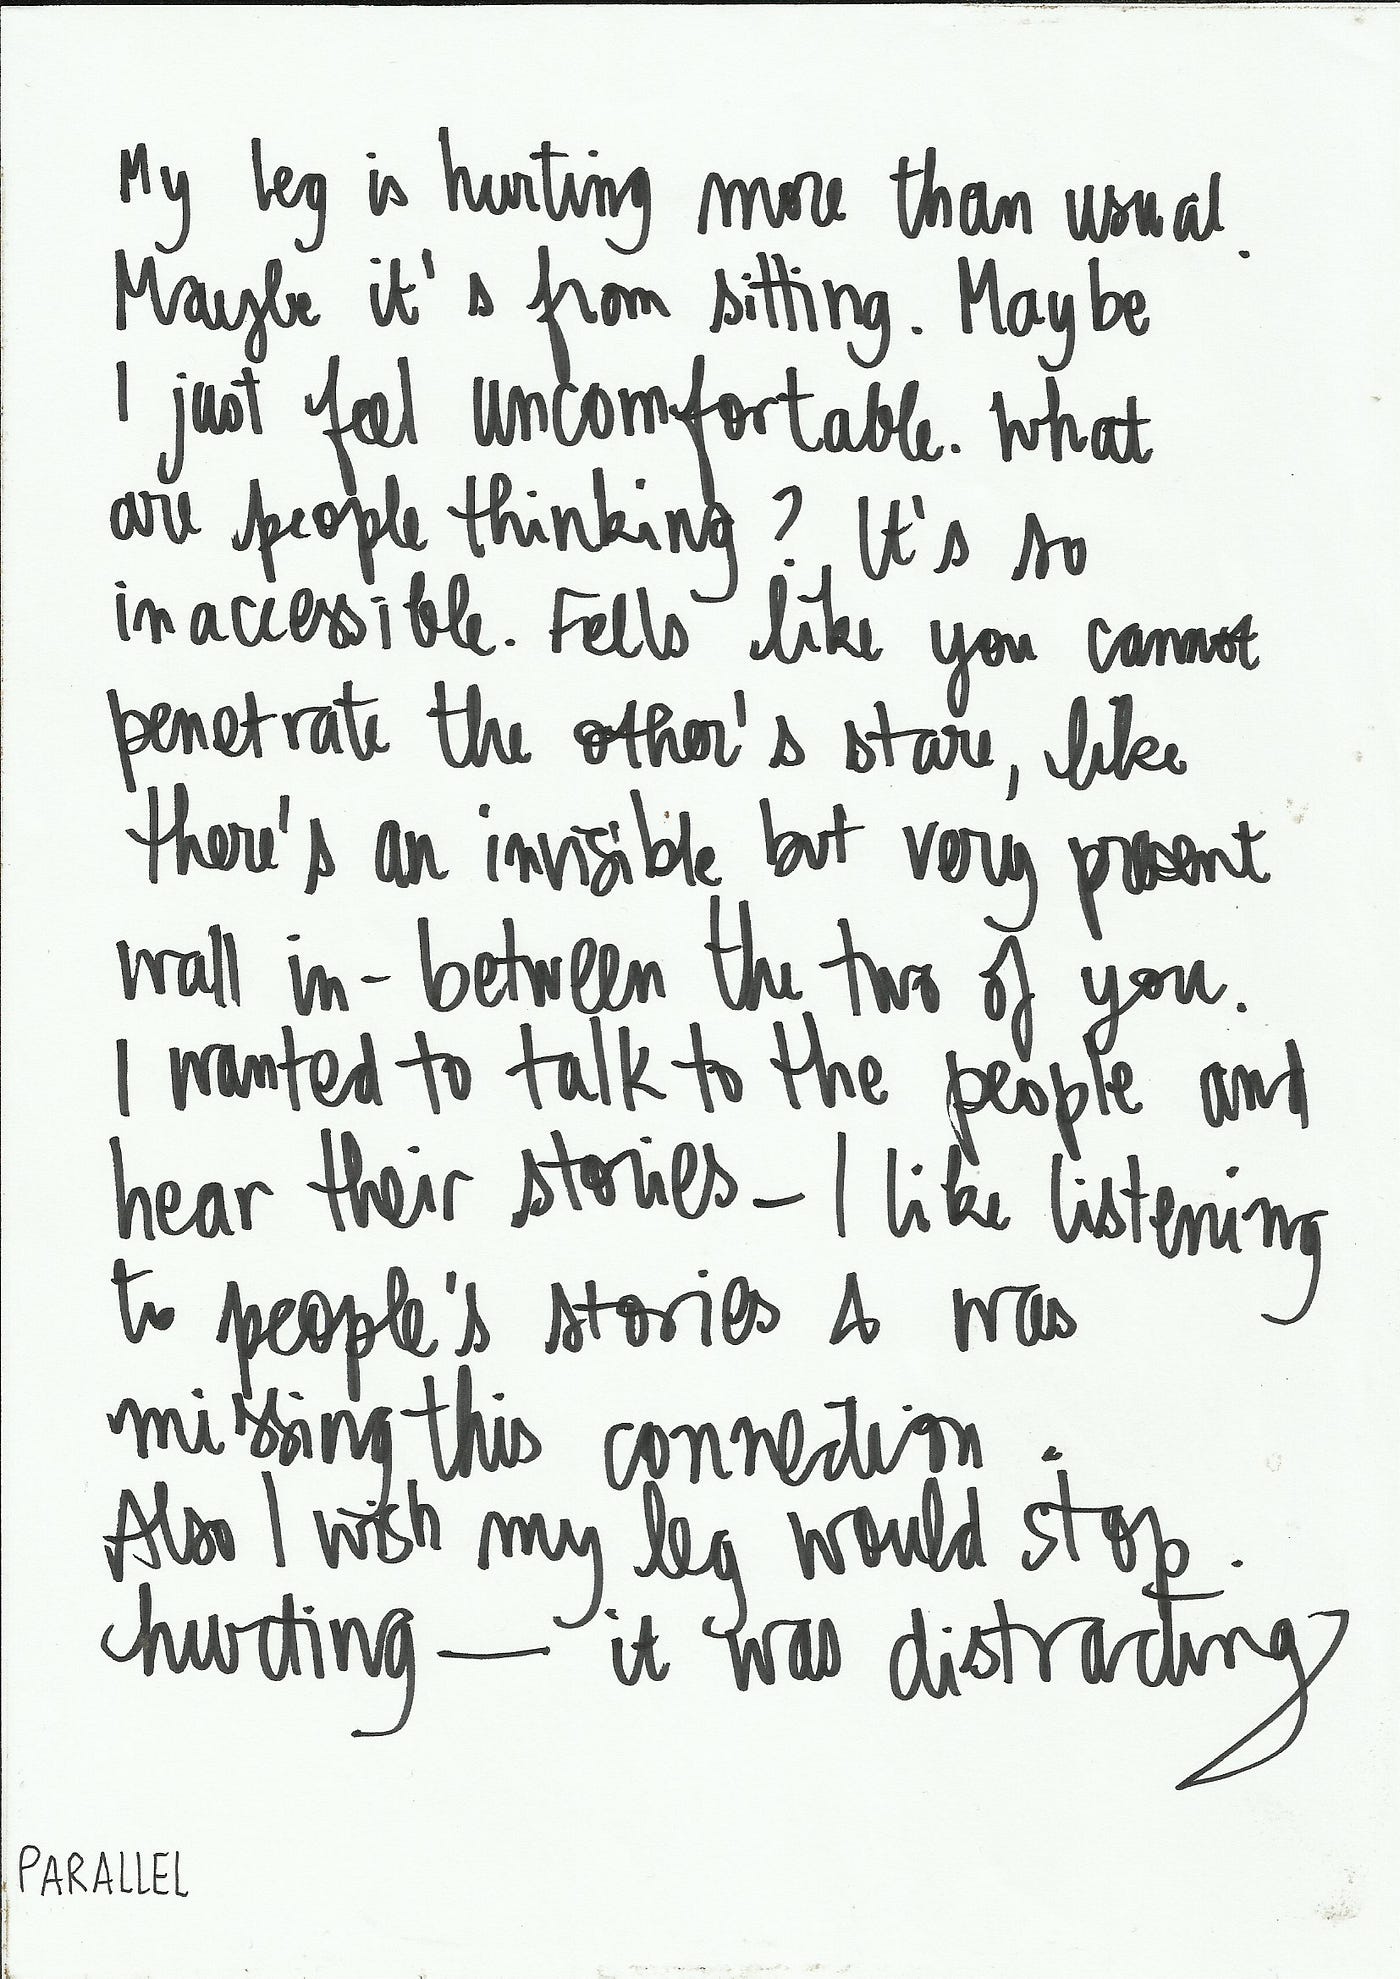 My leg is hurting more than usual.
Maybe it's from sitting. Maybe
I just feel uncomfortable. What
are people thinking? It's so
inaccessible. Fells like you cannot
penetrate the other's stare, like
there's an invisible but very present
wall in-between the two of you.
I wanted to talk to the people and
hear their stories - I like listening
to people's stories & was
missing this connection.
Also I wish my leg would stop.
hurting — it was distracting
PARALLEL